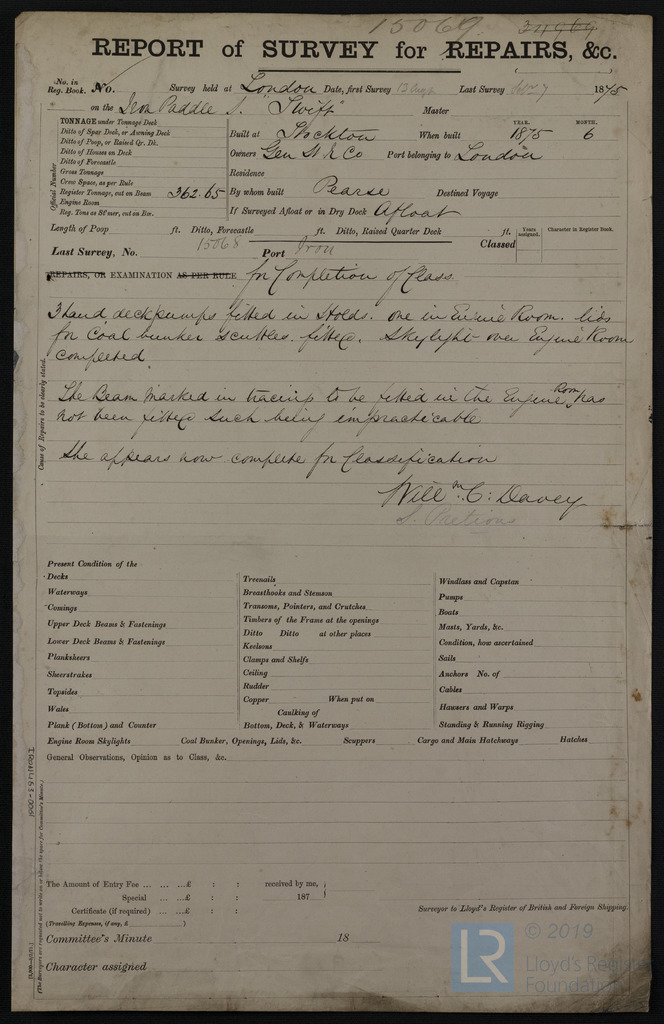 15069 34969
REPORT of SURVEY for REPAIRS, &c.
No. in Reg. Book. No. Survey held at London Date, first Survey 13 Augt Last Survey 1875
on the Iron Paddle S. "Swift" Master
TONNAGE under Tonnage Deck
Ditto of Spar Deck, or Awning Deck
Ditto of Poop, or Raised Qr. Dk.
Ditto of Houses on Deck
Ditto of Forecastle
Gross Tonnage
Crew Space, as per Rule
Register Tonnage, cut on Beam 362.65
Engine Room
Reg. Tons as St'mer, cut on Bm.
Official Number
Built at Stockton When built YEAR. 1875 MONTH. 6
Owners Gen S N Co Port belonging to London
Residence
By whom built Pearse Destined Voyage
If Surveyed Afloat or in Dry Dock Afloat
Length of Poop ft. Ditto, Forecastle ft. Ditto, Raised Quarter Deck ft.
Years assigned. Character in Register Book.
Last Survey, No. 15068 Port Iron Classed
REPAIRS, OR EXAMINATION AS PER RULE for Completion of Class
3 hand deck pumps fitted in Holds. one in Engine Room. lids
for Coal bunker scuttles fitted. Skylight over Engine Room
completed
The Beam marked in tracing to be fitted in the Engine Room has
not been fitted such being impracticable
She appears now complete for Classification
Willm. C: Davey
Cause of Repairs to be clearly stated.
Present Condition of the
Decks
Waterways
Comings
Upper Deck Beams & Fastenings
Lower Deck Beams & Fastenings
Planksheers
Sheerstrakes
Topsides
Wales
Plank (Bottom) and Counter
Treenails
Breasthooks and Stemson
Transoms, Pointers, and Crutches
Timbers of the Frame at the openings
Ditto Ditto at other places
Keelsons
Clamps and Shelfs
Ceiling
Rudder
Copper When put on
Caulking of
Bottom, Deck, & Waterways
Windlass and Capstan
Pumps
Boats
Masts, Yards, &c.
Condition, how ascertained
Sails
Anchors No. of
Cables
Hawsers and Warps
Standing & Running Rigging
Engine Room Skylights Coal Bunker, Openings, Lids, &c. Scuppers Cargo and Main Hatchways Hatches
General Observations, Opinion as to Class, &c.
The Amount of Entry Fee ... ... ...£ : : received by me,
Special ... ...£ : : 187
Certificate (if required) ... ...£ : :
(Travelling Expenses, if any, £ )
Surveyor to Lloyd's Register of British and Foreign Shipping.
Committee's Minute 18
Character assigned
(The Surveyors are requested not to write on or below the space for Committee's Minute.)
LR © 2019
Lloyd's Register
Foundation